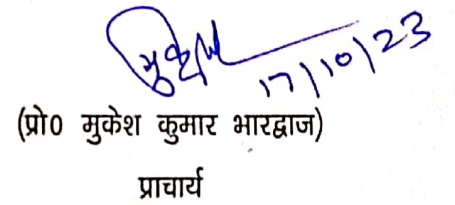 मुकेश
17/10/23
(प्रो0 मुकेश कुमार भारद्वाज)
प्राचार्य